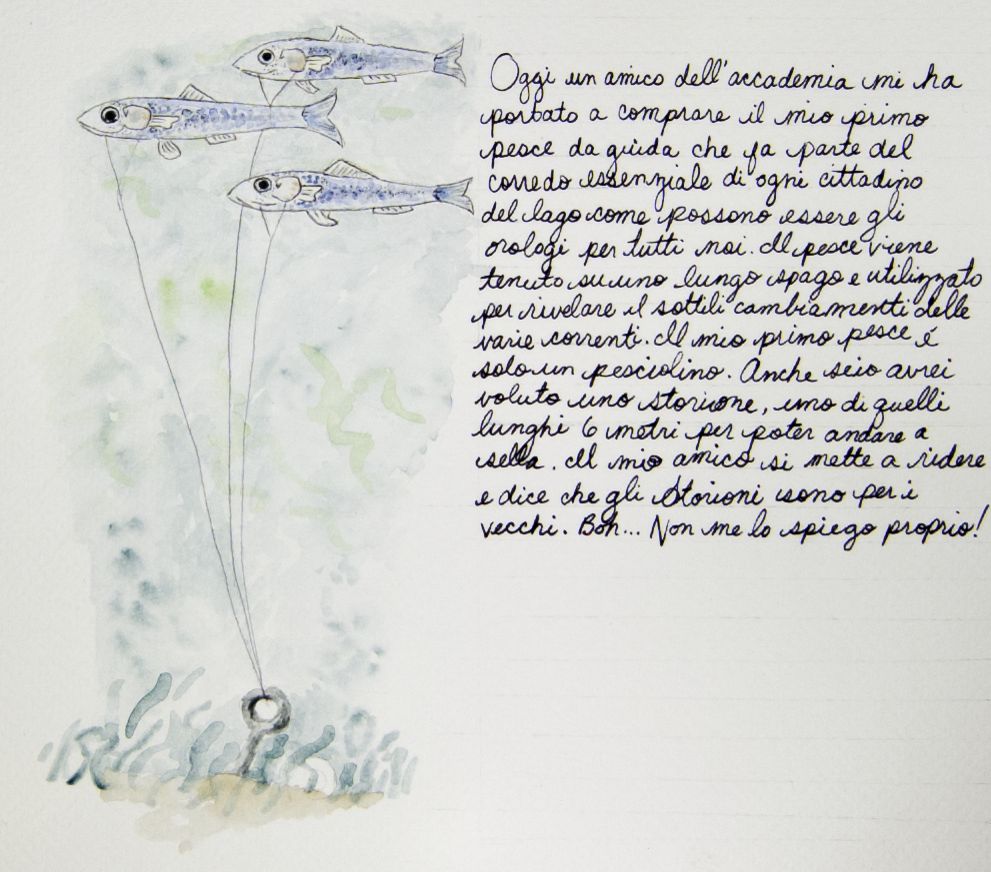 Oggi un amico dell'accademia mi ha
portato a comprare il mio primo
pesce da guida che fa parte del
corredo essenziale di ogni cittadino
del lago come possono essere gli
orologi per tutti noi. Il pesce viene
tenuto su uno lungo spago e utilizzato
per rivelare il sottili cambiamenti delle
varie correnti. Il mio primo pesce é
solo un pesciolino. Anche se io avrei
voluto uno storione, uno di quelli
lunghi 6 metri per poter andare a
sella. Il mio amico si mette a ridere
e dice che gli Storioni sono per i
vecchi. Boh... Non me lo spiego proprio!